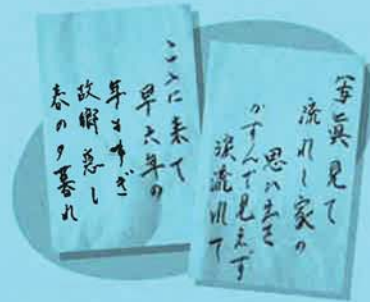 写眞見て
流れし家の
思い出を
かすんで見えず
涙流れて
こゝに来て
早六年の
年もすぎ
故郷恋し
春の夕暮れ